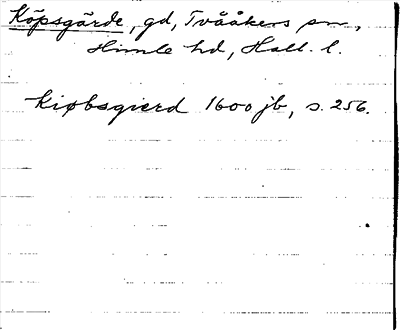 Köpsgärde, gd, Tvååkers sn,
Himle hd, Hall. l.
Kiøbsgierd 1600 jb, s. 256.